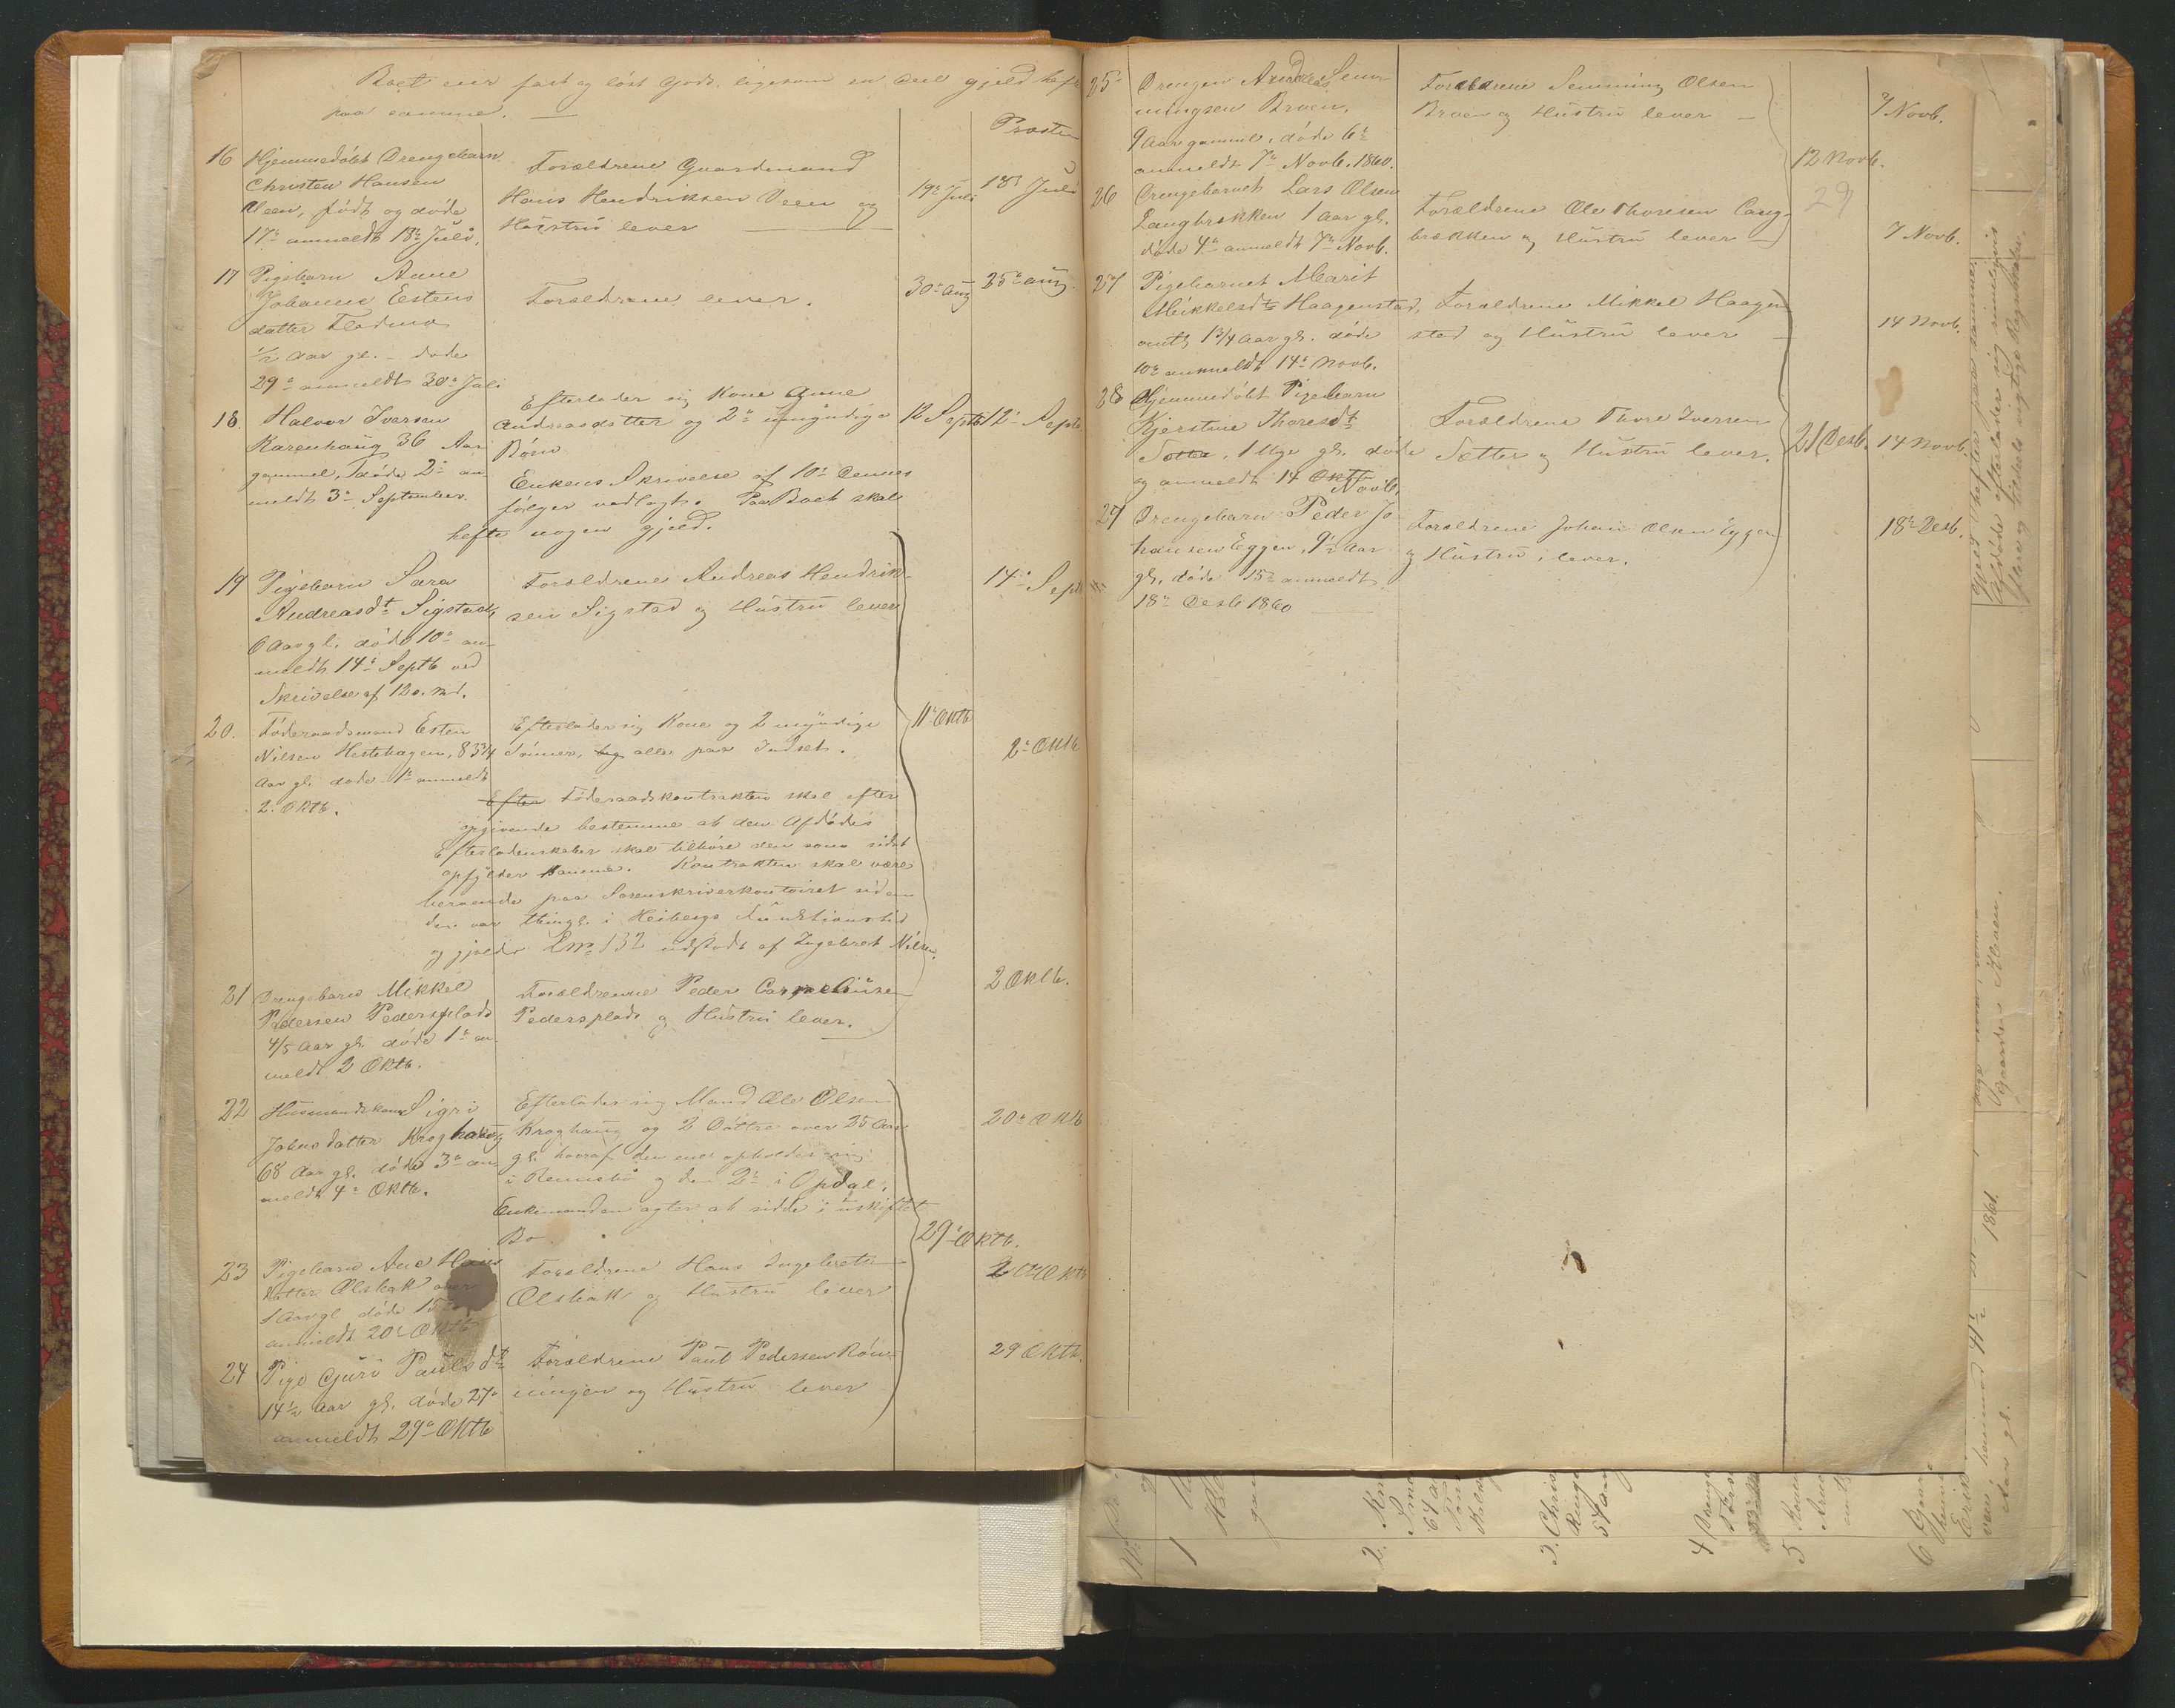 Boet eier fast og löst Gods, ligesom en Deel gjeld hefte
paa samme. —
Prosten
16 Hjemmedöbt Drengebarn
Christen Hansen
Veen, födt og döde
17de anmeldt 18de Juli.
Forældrene Gaardmand
Hans Hendriksen Veen og
Hüstrü lever —
19de Juli
18de Juli
17 Pigebarn Anne
Johanne Estens
datter Flodmo
1/2 Aar gl. – döde
29de anmeldt 30de Juli
Forældrene lever.
30te Aüg
25de Aüg.
18. Halvor Iversen
Karenhaüg 36 Aar
gammel, döde 2de an-
meldt 3de September
Efterlader sig Kone Anne
Andreasdatter og 2de ümyndige
Börn
Enkens Skrivelse af 10de Dennes
fölger vedlagt. Paa Boet skal
hefte nogen gjeld.
12 Septb
12te Septb
19 Pigebarn Sara
Andreasdt Sigstad,
6 Aar gl. döde 10de an-
meldt 14de Septb ved
Skrivelse af 12 s. Md.
Forældrene Andreas Hendrik-
sen Sigstad og Hüstrü lever
14de Septb
20. Föderaadsmand Esten
Nilsen Hestehagen, 83 3/4
Aar gl. döde 1te anmeldt
2. Oktb.
Efterlader sig Kone og 2 myndige
Sönner, alle paa Indset.
Efter Föderaadskontrakten skal efter
opgivende bestemme at den Afdödes
Efterladenskaber skal tilhöre den som sidst
opfylder samme. Kontrakten skal være
beroende paa Sorenskriverkontoiret siden
den var thingl. i Heibergs Fünktionstid
og gjælde Lno 132 udstedt af Ingebret Nilsen.
11te Oktb
2de Oktb
21 Drengebarn Mikkel
Pedersen Pedersplads
4/5 Aar gl. döde 1te an-
meldt 2 Oktb.
Forældrene Peder Carneliüsen
Pedersplads og Hüstrü lever.
2 Oktb.
22 Hüsmandskone Sigri
Johnsdatter Kroghaüg
68 Aar gl. döde 3de an-
meldt 4de Oktb.
Efterlader sig Mand Ole Olsen
Kroghaüg og 2 Döttre over 25 Aar
gl. hvoraf den ene opholder sig
i Rennebü og den 2de i Opdal.
Enkemanden agter at sidde i üskiftet
Bo.
20de Oktb
29de Oktb.
23 Pigebarn Ane Hans
datter Olsbak over
1 Aar gl. döde 15de
anmeldt 20de Oktb
Forældrene Hans Ingebretsen
Olsbak og Hüstrü lever
20de Oktb
24 Pige Güri Paülsdtr
14 1/2 Aar gl. döde 27de
anmeldt 29de Oktb
Forældrene Paül Pedersen Rön-
ningen og Hüstrü lever
29 Oktb.
25 Drengen Andreas Sem-
mingsen Broen,
9 Aar gammel, döde 6te
anmeldt 7de Novb. 1860.
Forældrene Semming Olsen
Broen og Hüstrü lever —
7 Novb.
12 Novb.
29
26 Drengebarnet Lars Olsen
Langbrekken 1 Aar gl.
döde 4de anmeldt 7de Novb.
Forældrene Ole Thoresen Lang-
brækken og Hüstrü lever —
7 Novb.
27 Pigebarnet Marit
Mikkelsdtr Haagenstad,
omtr 1 3/4 Aar gl. döde
10de anmeldt 14de Novb.
Forældrene Mikkel Haagen-
stad og Hüstrü lever —
14 Novb.
28 Hjemmedöbt Pigebarn
Kjerstine Thoresdtr
Sætter, 1 Uge gl. döde
og anmeldt 14 Oktb
Novb.
Forældrene Thore Iversen
Sætter og Hüstrü lever.
21 Desb.
14 Novb.
29 Drengebarn Peder Jo-
hansen Eggen, 9 1/2 Aar
gl. döde 15de anmeldt
18de Desb 1860
Forældrene Johan Olsen Eggen
og Hüstrü, lever.
18de Desb.
1861.
Gaarden Moen.
Aar gl.
1
2.
3. Chris
4 Dreng
5 Konen
6